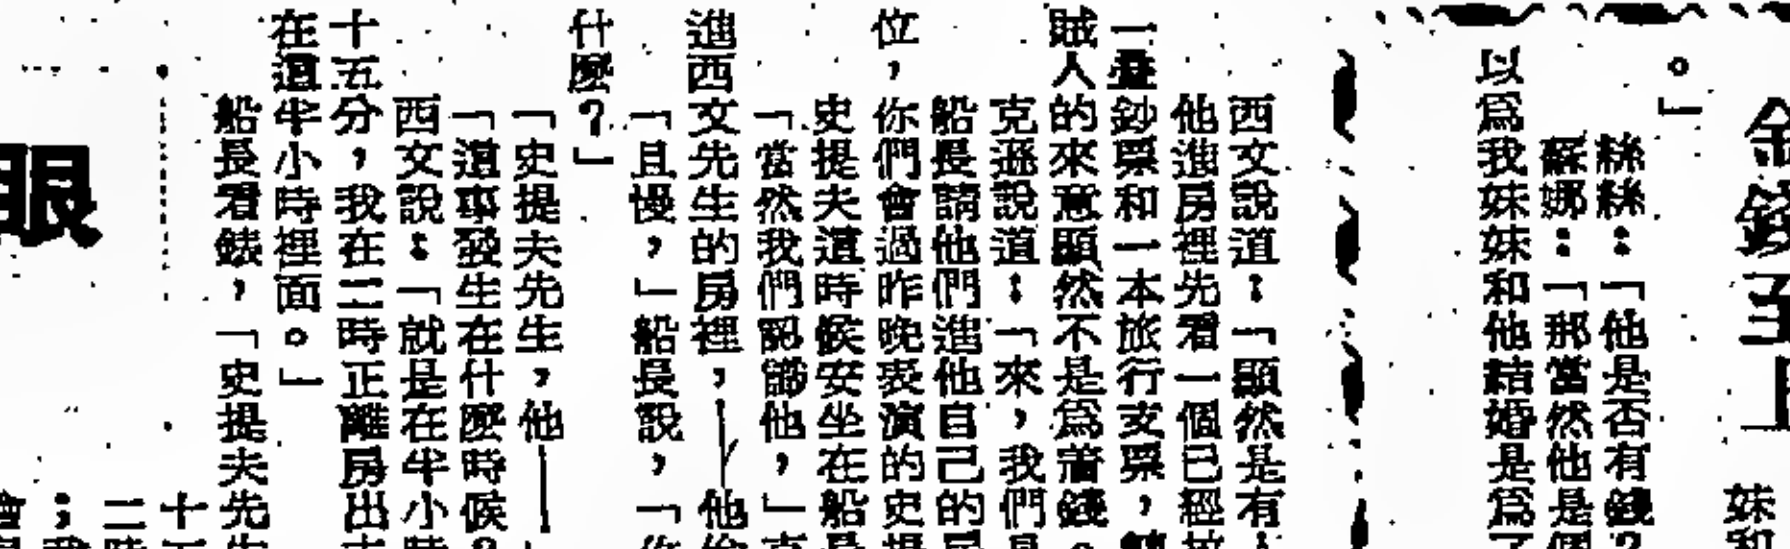 金錢至上
妹和
。」
絲絲：「他是否有錢？
蘇娜：「那當然他是個
以爲我妹妹和他結婚是爲了
西文說道：「顯然是有人
他進房裡先看一個已經被
一疊鈔票和一本旅行支票，
賊人的來意顯然不是爲着錢。
克遜說道：「來，我們
船長請他們進他自己的房
位，你們會過昨晚表演的史提
史提夫這時候安坐在船長
「當然我們認識他，」克
進西文先生的房裡，——他
「且慢，」船長說，「你
什麼？」
「史提夫先生，他——」
「這事發生在什麼時候？
西文說：「就是在半小時
十五分，我在二時正離房出
在這半小時裡面。」
船長看錶，「史提夫先生
十五
二時
；我
會
眼